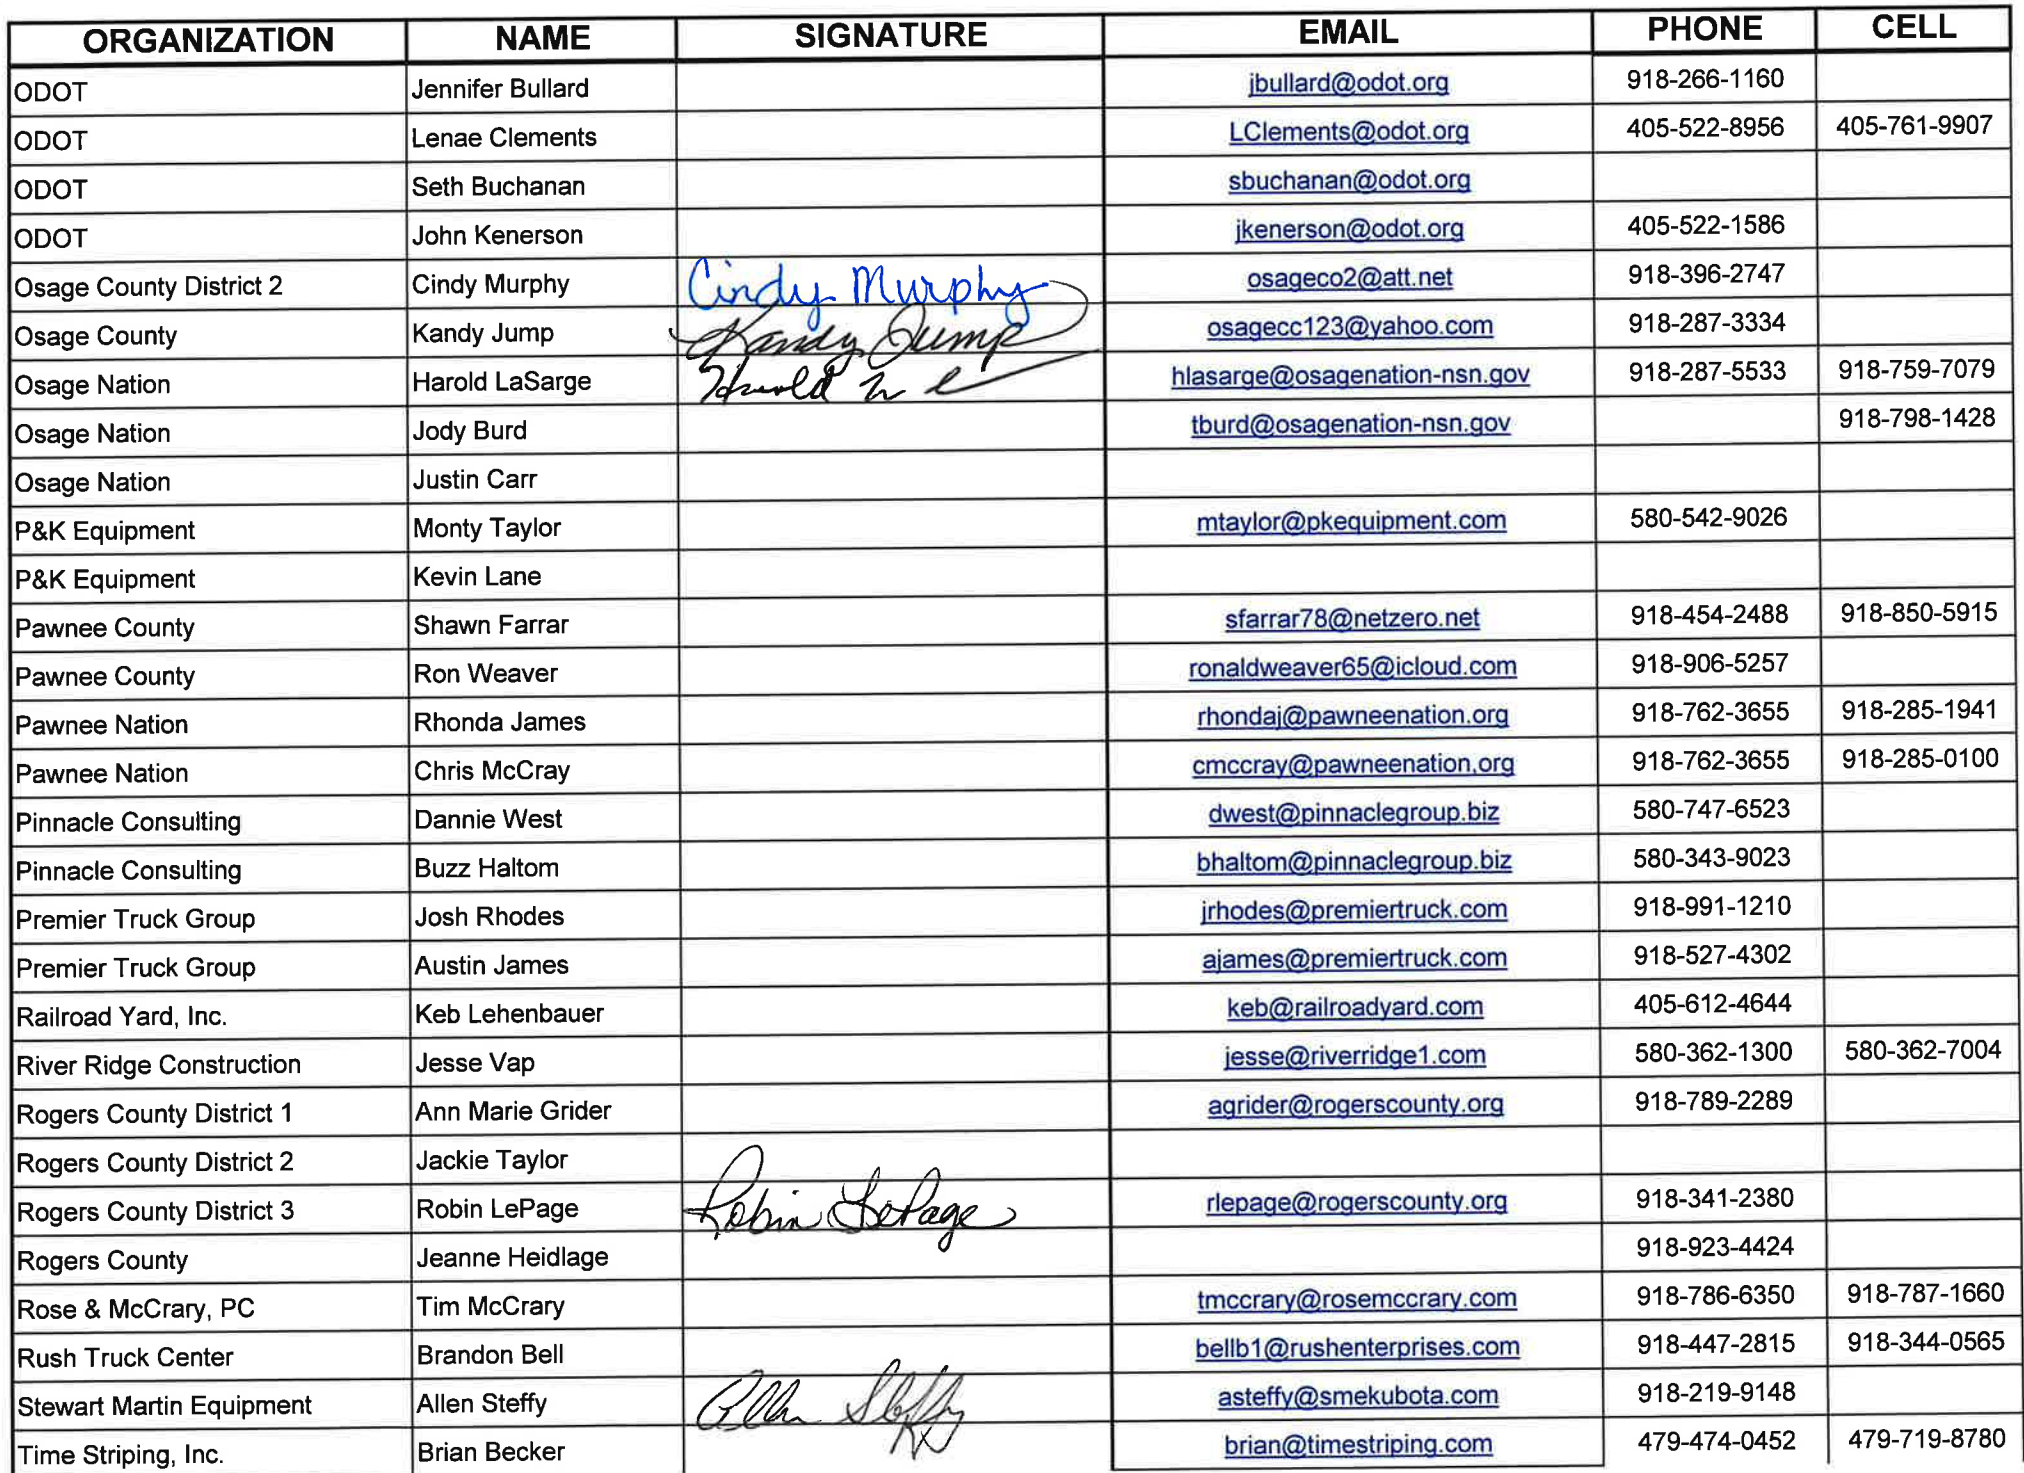 ORGANIZATION NAME SIGNATURE EMAIL PHONE CELL
ODOT Jennifer Bullard jbullard@odot.org 918-266-1160
ODOT Lenae Clements LClements@odot.org 405-522-8956 405-761-9907
ODOT Seth Buchanan sbuchanan@odot.org
ODOT John Kenerson jkenerson@odot.org 405-522-1586
Osage County District 2 Cindy Murphy Cindy Murphy osageco2@att.net 918-396-2747
Osage County Kandy Jump Kandy Jump osagecc123@yahoo.com 918-287-3334
Osage Nation Harold LaSarge Harold hlasarge@osagenation-nsn.gov 918-287-5533 918-759-7079
Osage Nation Jody Burd tburd@osagenation-nsn.gov 918-798-1428
Osage Nation Justin Carr
P&K Equipment Monty Taylor mtaylor@pkequipment.com 580-542-9026
P&K Equipment Kevin Lane
Pawnee County Shawn Farrar sfarrar78@netzero.net 918-454-2488 918-850-5915
Pawnee County Ron Weaver ronaldweaver65@icloud.com 918-906-5257
Pawnee Nation Rhonda James rhondaj@pawneenation.org 918-762-3655 918-285-1941
Pawnee Nation Chris McCray cmccray@pawneenation.org 918-762-3655 918-285-0100
Pinnacle Consulting Dannie West dwest@pinnaclegroup.biz 580-747-6523
Pinnacle Consulting Buzz Haltom bhaltom@pinnaclegroup.biz 580-343-9023
Premier Truck Group Josh Rhodes jrhodes@premiertruck.com 918-991-1210
Premier Truck Group Austin James ajames@premiertruck.com 918-527-4302
Railroad Yard, Inc. Keb Lehenbauer keb@railroadyard.com 405-612-4644
River Ridge Construction Jesse Vap jesse@riverridge1.com 580-362-1300 580-362-7004
Rogers County District 1 Ann Marie Grider agrider@rogerscounty.org 918-789-2289
Rogers County District 2 Jackie Taylor
Rogers County District 3 Robin LePage Robin LePage rlepage@rogerscounty.org 918-341-2380
Rogers County Jeanne Heidlage 918-923-4424
Rose & McCrary, PC Tim McCrary tmccrary@rosemccrary.com 918-786-6350 918-787-1660
Rush Truck Center Brandon Bell bellb1@rushenterprises.com 918-447-2815 918-344-0565
Stewart Martin Equipment Allen Steffy Allen Steffy asteffy@smekubota.com 918-219-9148
Time Striping, Inc. Brian Becker brian@timestriping.com 479-474-0452 479-719-8780